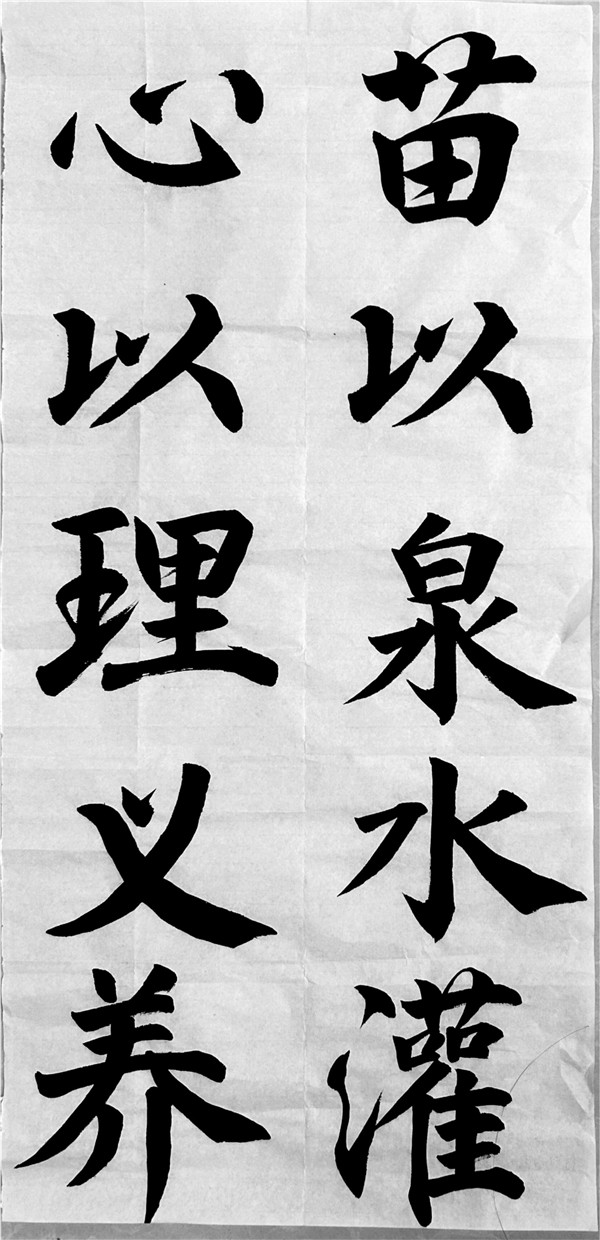 苗以泉水灌
心以理义养